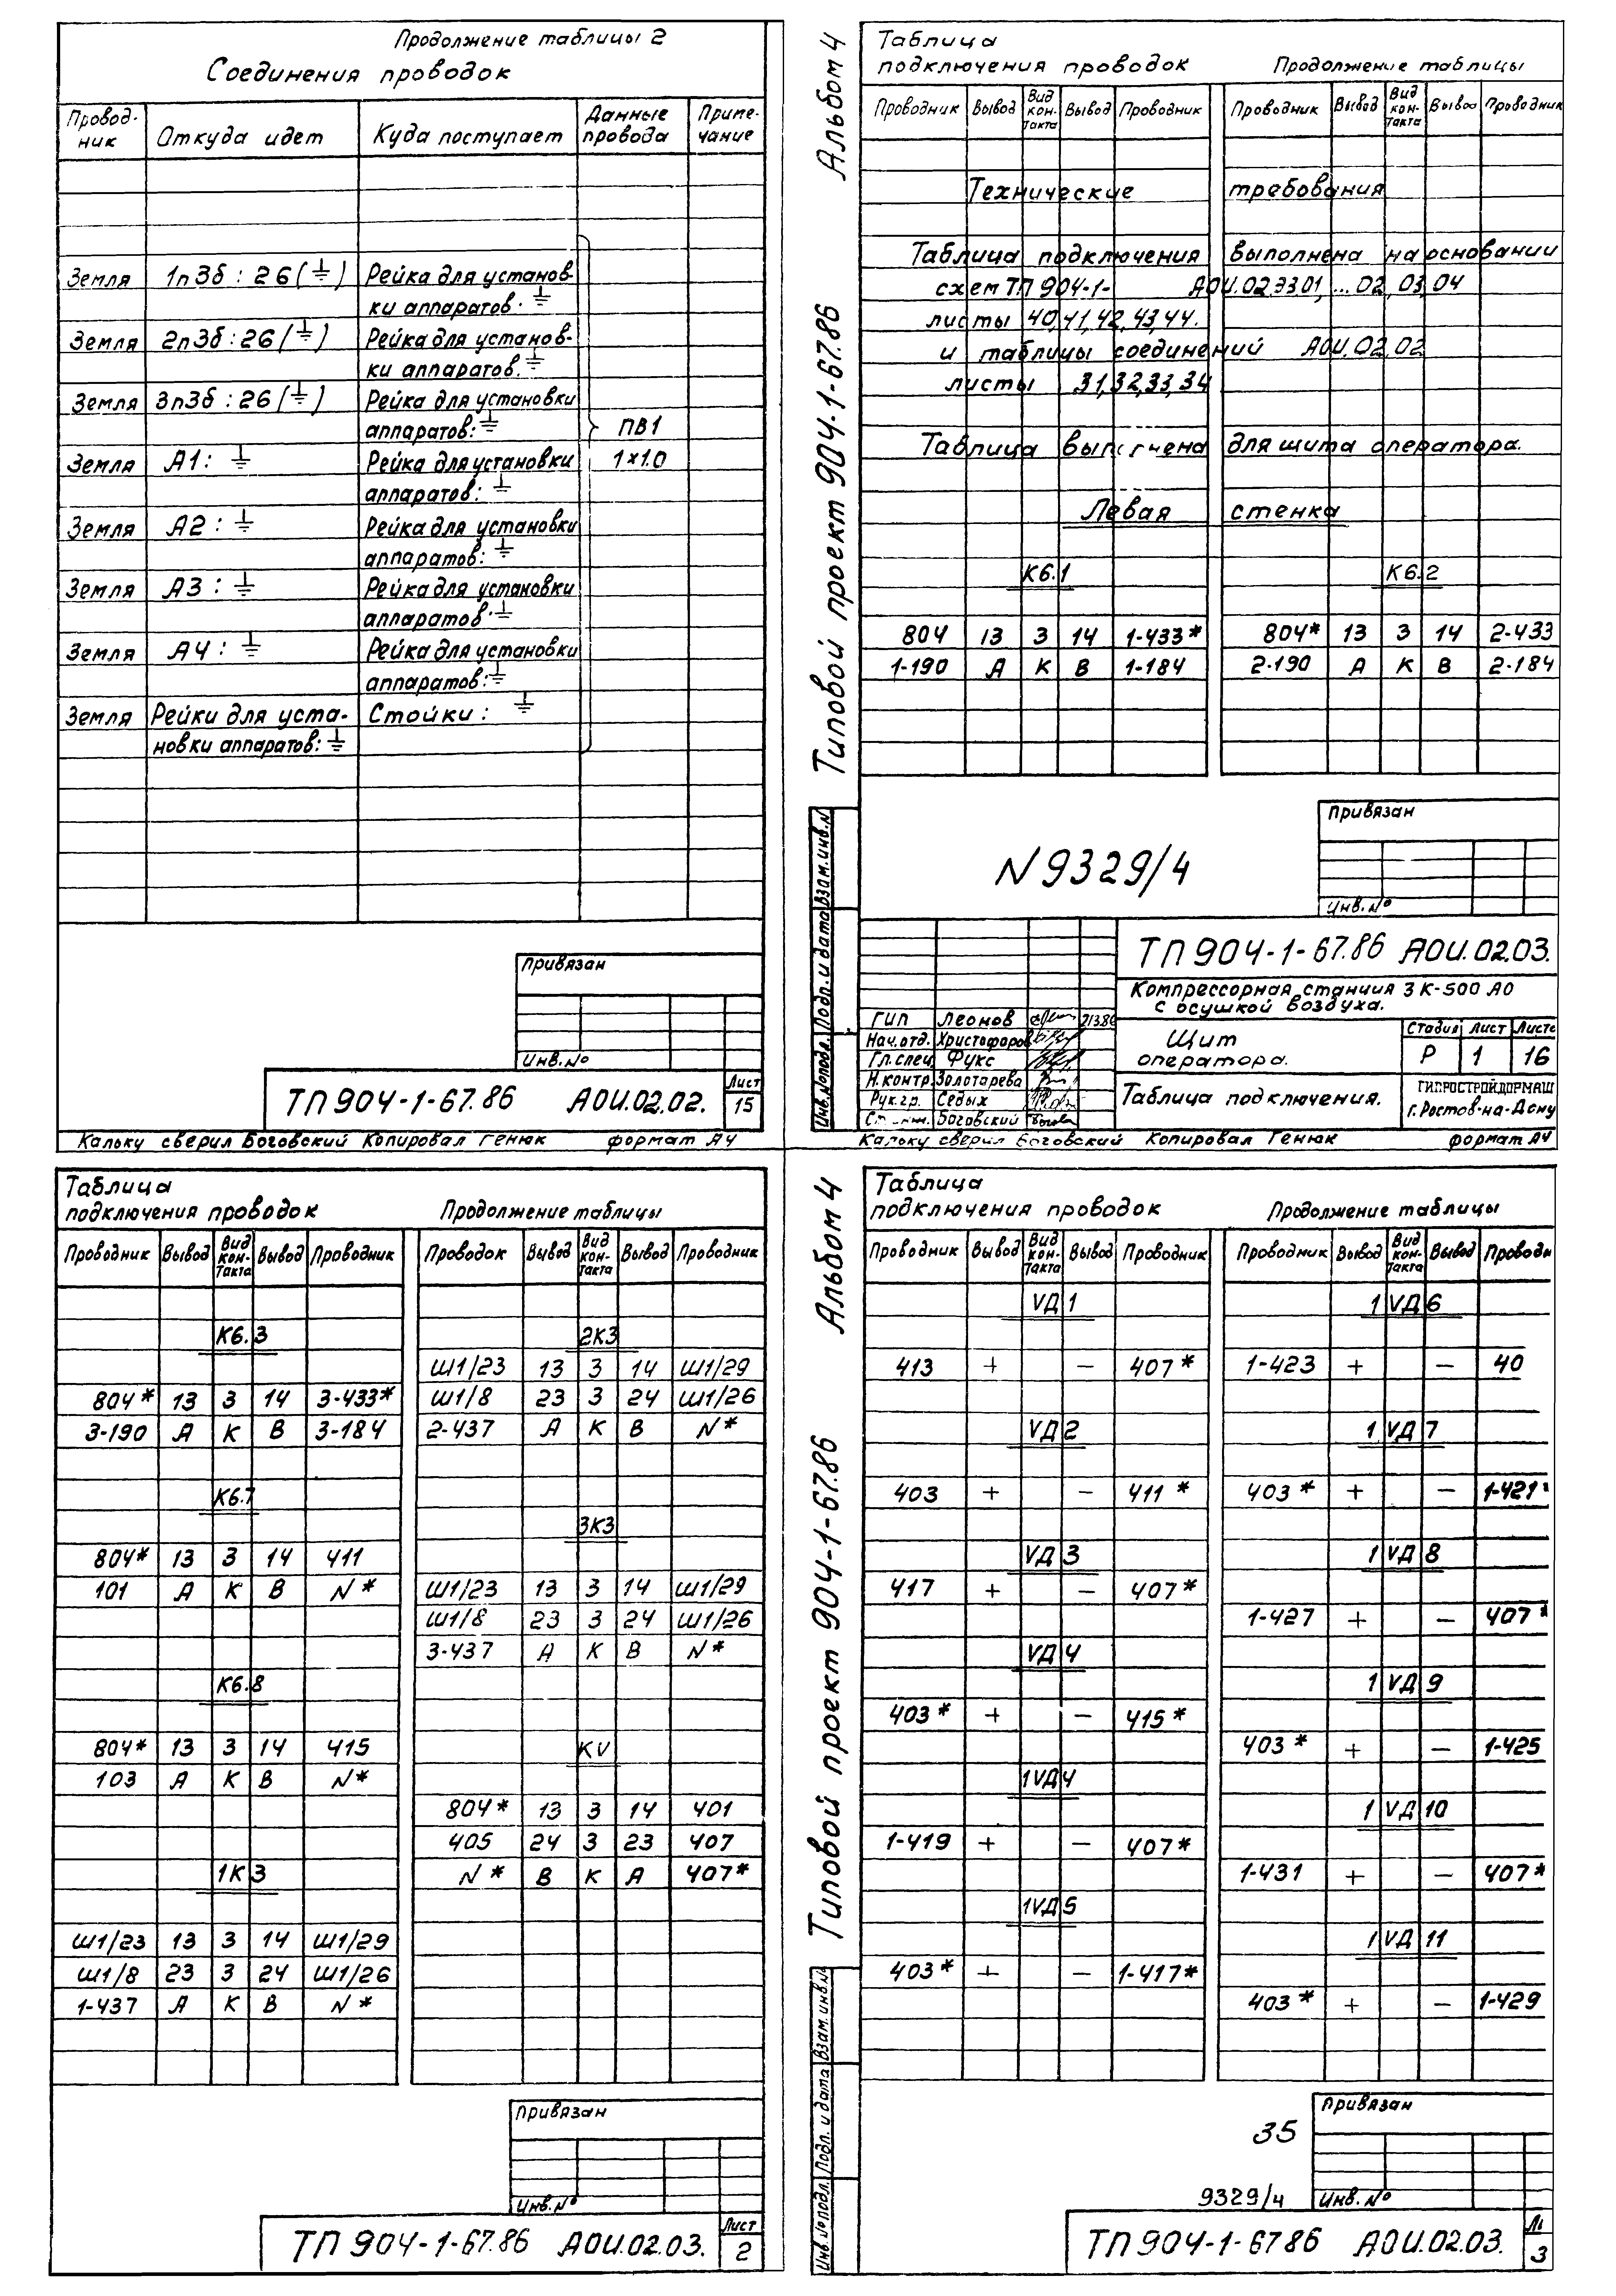 Продолжение таблицы 2
Соединения проводок
Провод- Откуда идет Куда поступает Данные Приме-
ник провода чание
Земля 1п3б : 26 (⏚) Рейка для установ-
ки аппаратов. ⏚
Земля 2п3б : 26 (⏚) Рейка для установ-
ки аппаратов. ⏚
Земля 3п3б : 26 (⏚) Рейка для установки
аппаратов: ⏚ ПВ1
Земля А1 : ⏚ Рейка для установки 1×1.0
аппаратов: ⏚
Земля А2 : ⏚ Рейка для установки
аппаратов: ⏚
Земля А3 : ⏚ Рейка для установки
аппаратов. ⏚
Земля А4 : ⏚ Рейка для установки
аппаратов: ⏚
Земля Рейки для уста- Стойки : ⏚
новки аппаратов: ⏚
Привязан
Инв.№
ТП 904-1-67.86 АОИ.02.02. Лист
15
Кальку сверил Боговский Копировал Генюк формат А4
Альбом 4
Типовой проект 904-1-67.86
Таблица
подключения проводок Продолжение таблицы
Проводник Вывод Вид кон-такта Вывод Проводник Проводник Вывод Вид кон-такта Вывод Проводник
Технические требования
Таблица подключения выполнена на основании
схем ТП 904-1- АОИ.02.ЭЗ.01, ... 02, 03, 04
листы 40,41,42,43,44.
и таблицы соединений АОИ.02.02
листы 31,32,33,34
Таблица выполнена для щита оператора.
Левая стенка
К6.1 К6.2
804 13 З 14 1-433* 804* 13 З 14 2-433
1-190 А К В 1-184 2-190 А К В 2-184
Привязан
Инв.№
N 9329/4
Взам.инв.N
Подп. и дата
Инв.№ подл.
ТП 904-1-67.86 АОИ.02.03.
Компрессорная станция 3 К-500 АО
с осушкой воздуха.
ГИП Леонов
Нач.отд. Христофоров
Гл.спец Фукс
Н.контр. Золотарева
Рук.гр. Седых
Боговский
Щит
оператора.
Стадия Лист Листо
Р 1 16
Таблица подключения.
ГИПРОСТРОЙДОРМАШ
г.Ростов-на-Дону
Кальку сверил Боговский Копировал Генюк формат А4
Таблица
подключения проводок Продолжение таблицы
Проводник Вывод Вид кон-такта Вывод Проводник Проводок Вывод Вид кон-такта Вывод Проводник
К6.3 2К3
Ш1/23 13 З 14 Ш1/29
804* 13 З 14 3-433* Ш1/8 23 З 24 Ш1/26
3-190 А К В 3-184 2-437 А К В N*
К6.7
3К3
804* 13 З 14 411
101 А К В N* Ш1/23 13 З 14 Ш1/29
Ш1/8 23 З 24 Ш1/26
3-437 А К В N*
К6.8
804* 13 З 14 415 KV
103 А К В N*
804* 13 З 14 401
405 24 З 23 407
1К3 N* В К А 407*
Ш1/23 13 З 14 Ш1/29
Ш1/8 23 З 24 Ш1/26
1-437 А К В N*
Привязан
Инв.№
ТП 904-1-67.86 АОИ.02.03. Лист
2
Альбом 4
Типовой проект 904-1-67.86
Таблица
подключения проводок Продолжение таблицы
Проводник Вывод Вид кон-такта Вывод Проводник Проводник Вывод Вид кон-такта Вывод Проводн
VД1 1VД6
413 + − 407* 1-423 + − 40
VД2 1VД7
403 + − 411* 403* + − 1-421
VД3 1VД8
417 + − 407*
1-427 + − 407*
VД4
1VД9
403* + − 415*
403* + − 1-425
1VД4
1VД10
1-419 + − 407*
1-431 + − 407*
1VД5
1VД11
403* + − 1-417*
403* + − 1-429
Взам. инв.№
Подп. и дата
Инв.№ подл.
35
9329/4
Привязан
Инв.№
ТП 904-1-67 86 АОИ.02.03.
3